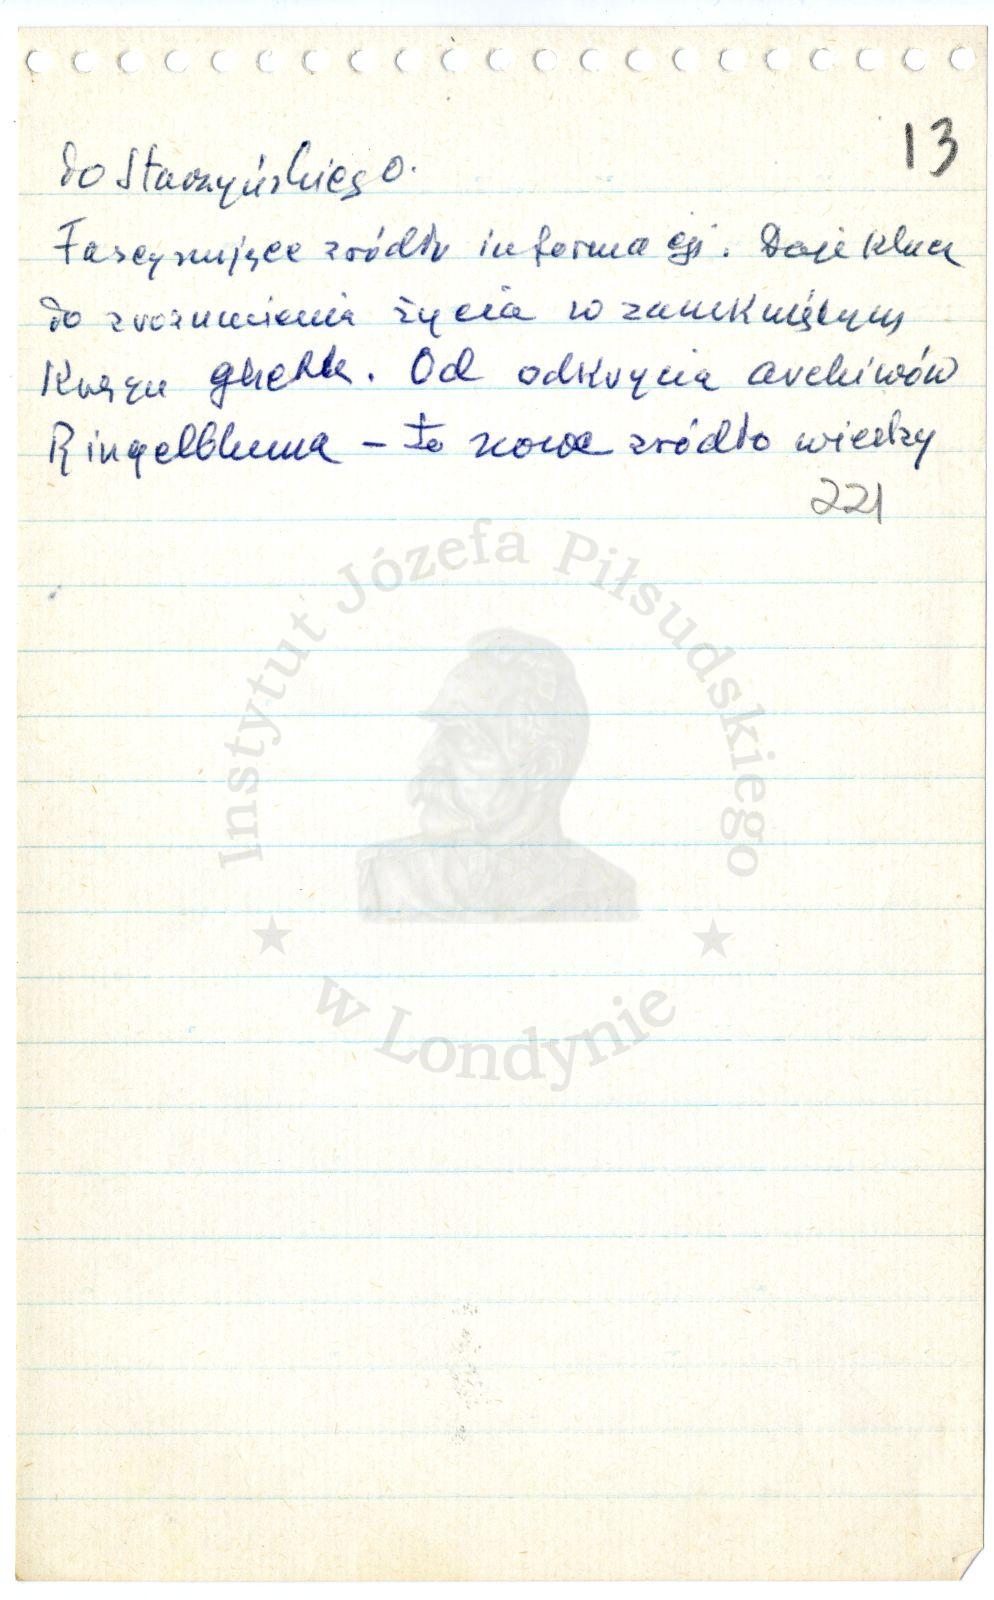 13
do Starzyńskiego.
Fascynujące źródło informacji. Daje klucz
do zrozumienia życia w zamkniętym
kręgu ghetta. Od odkrycia archiwów
Ringelbluma – to nowe źródło wiedzy
221
Instytut Józefa Piłsudskiego
w Londynie